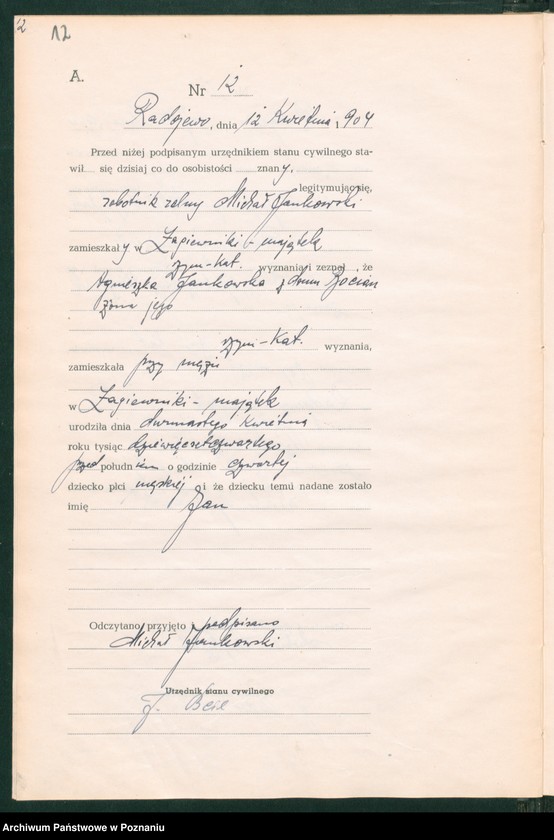 12
12
A.
Nr 12
Radojewo, dnia 12 Kwietnia, 904
Przed niżej podpisanym urzędnikiem stanu cywilnego sta-
wił się dzisiaj co do osobistości znany,
legitymując się,
robotnik rolny Michał Jankowski
zamieszkały w Łagiewniki - majątek
rzym-kat. wyznania i zeznał, że
Agnieszka Jankowska z domu Bocian
żona jego
rzym-Kat. wyznania,
zamieszkała przy mężu
w Łagiewniki - majątek
urodziła dnia dwunastego Kwietnia
roku tysiąc dziewięćsetczwartego
przedpołudniem o godzinie czwartej
dziecko płci męskiej i że dziecku temu nadane zostało
imię Jan
Odczytano, przyjęto i podpisano
Michał Jankowski
Urzędnik stanu cywilnego
J.
Archiwum Państwowe w Poznaniu